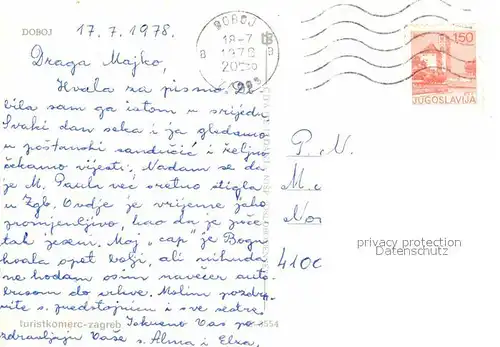 DOBOJ
17. 7. 1978.
DOBOJ
18-7
1978
a
1,50
JUGOSLAVIJA
Draga Majko,
Hvala za pismo. Do-
bila sam ga istom u srijedu
Svaki dan seka i ja gledamo
u poštanski sandučić i željno
čekamo vijesti. Nadam se da
je M. Paula već sretno stigla
u Zgb. Ovdje je vrijeme jako
promjenljivo, kao da je poče
tak jeseni. Moj „cap" je Bogu
hvala opet bolji, ali nikuda
ne hodam osim navečer auto-
busom do crkve. Molim pozdra-
vite s. predstojnicu i sve sestre.
Iskreno Vas po
zdravljaju Vaše s. Alma i Elza.
P. N.
M.
No
4100
privacy protection
Datenschutz
turistkomerc-zagreb
8554